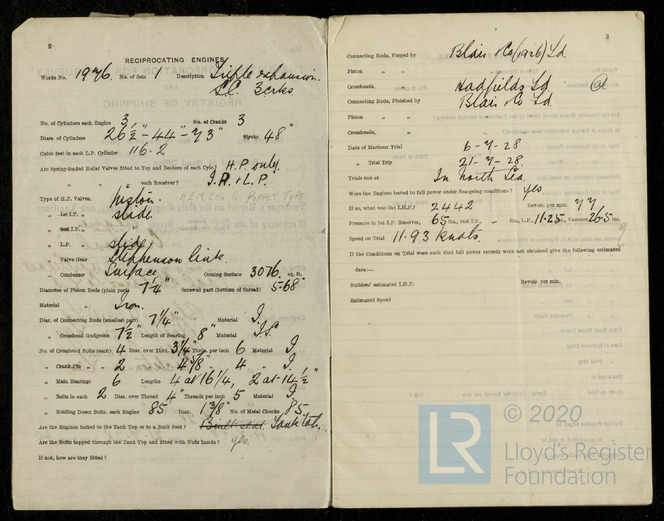 2
RECIPROCATING ENGINES
Works No. 1976. No. of Sets 1 Description Triple expansion.
3 crks
No. of Cylinders each Engine 3 No. of Cranks 3
Diars. of Cylinders 26½"-44"-73" Stroke 48"
Cubic feet in each L.P. Cylinder 116.2
Are Spring-loaded Relief Valves fitted to Top and Bottom of each Cyl.? H.P. only.
„ „ each Receiver? I.P. & L.P.
Type of H.P. Valves, piston.
„ 1st I.P. „ slide
„ 2nd I.P. „
„ L.P. „ slide,
„ Valve Gear Stephenson link.
„ Condenser Surface Cooling surface 3076 sq. ft.
Diameter of Piston Rods (plain part) 7¼" Screwed part (bottom of thread) 5.68"
Material „ Iron.
Diar. of Connecting Rods (smallest part) 7¼" Material I.
„ Crosshead Gudgeons 7½" Length of Bearing 8" Material I.S.
No. of Crosshead Bolts (each) 4 Diar. over Thrd. 3¼" Thrds. per inch 6 Material I.
„ Crank Pin „ 2 „ 4⅜" „ 4 „ I.
„ Main Bearings 6 Lengths 4 at 16¼, 2 at 14½"
„ Bolts in each 2 Diar. over Thread 4" Threads per inch 5 Material I
„ Holding Down Bolts, each Engine 85 Diar. 1⅜" No. of Metal Chocks 85.
Are the Engines bolted to the Tank Top or to a Built Seat? Built seat. Tank top.
Are the Bolts tapped through the Tank Top and fitted with Nuts Inside? yes.
If not, how are they fitted?
3
Connecting Rods, Forged by Blair & Co (1926) Ld.
Piston „ „
Crossheads, „ Hadfields Ld
Connecting Rods, Finished by Blair & Co Ld
Piston „ „
Crossheads, „
Date of Harbour Trial 6-7-28
„ Trial Trip 21-7-28.
Trials run at In North Sea
Were the Engines tested to full power under Sea-going conditions? yes
If so, what was the I.H.P.? 2442 Revols. per min. 77
Pressure in 1st I.P. Receiver, 65 lbs., 2nd I.P., - lbs., L.P., 11.25 lbs., Vacuum 26.5 ins.
Speed on Trial 11.93 knots.
If the Conditions on Trial were such that full power records were not obtained give the following estimated
data:—
Builders' estimated I.H.P. Revols. per min.
Estimated Speed
LR
© 2020
Lloyd's Register
Foundation